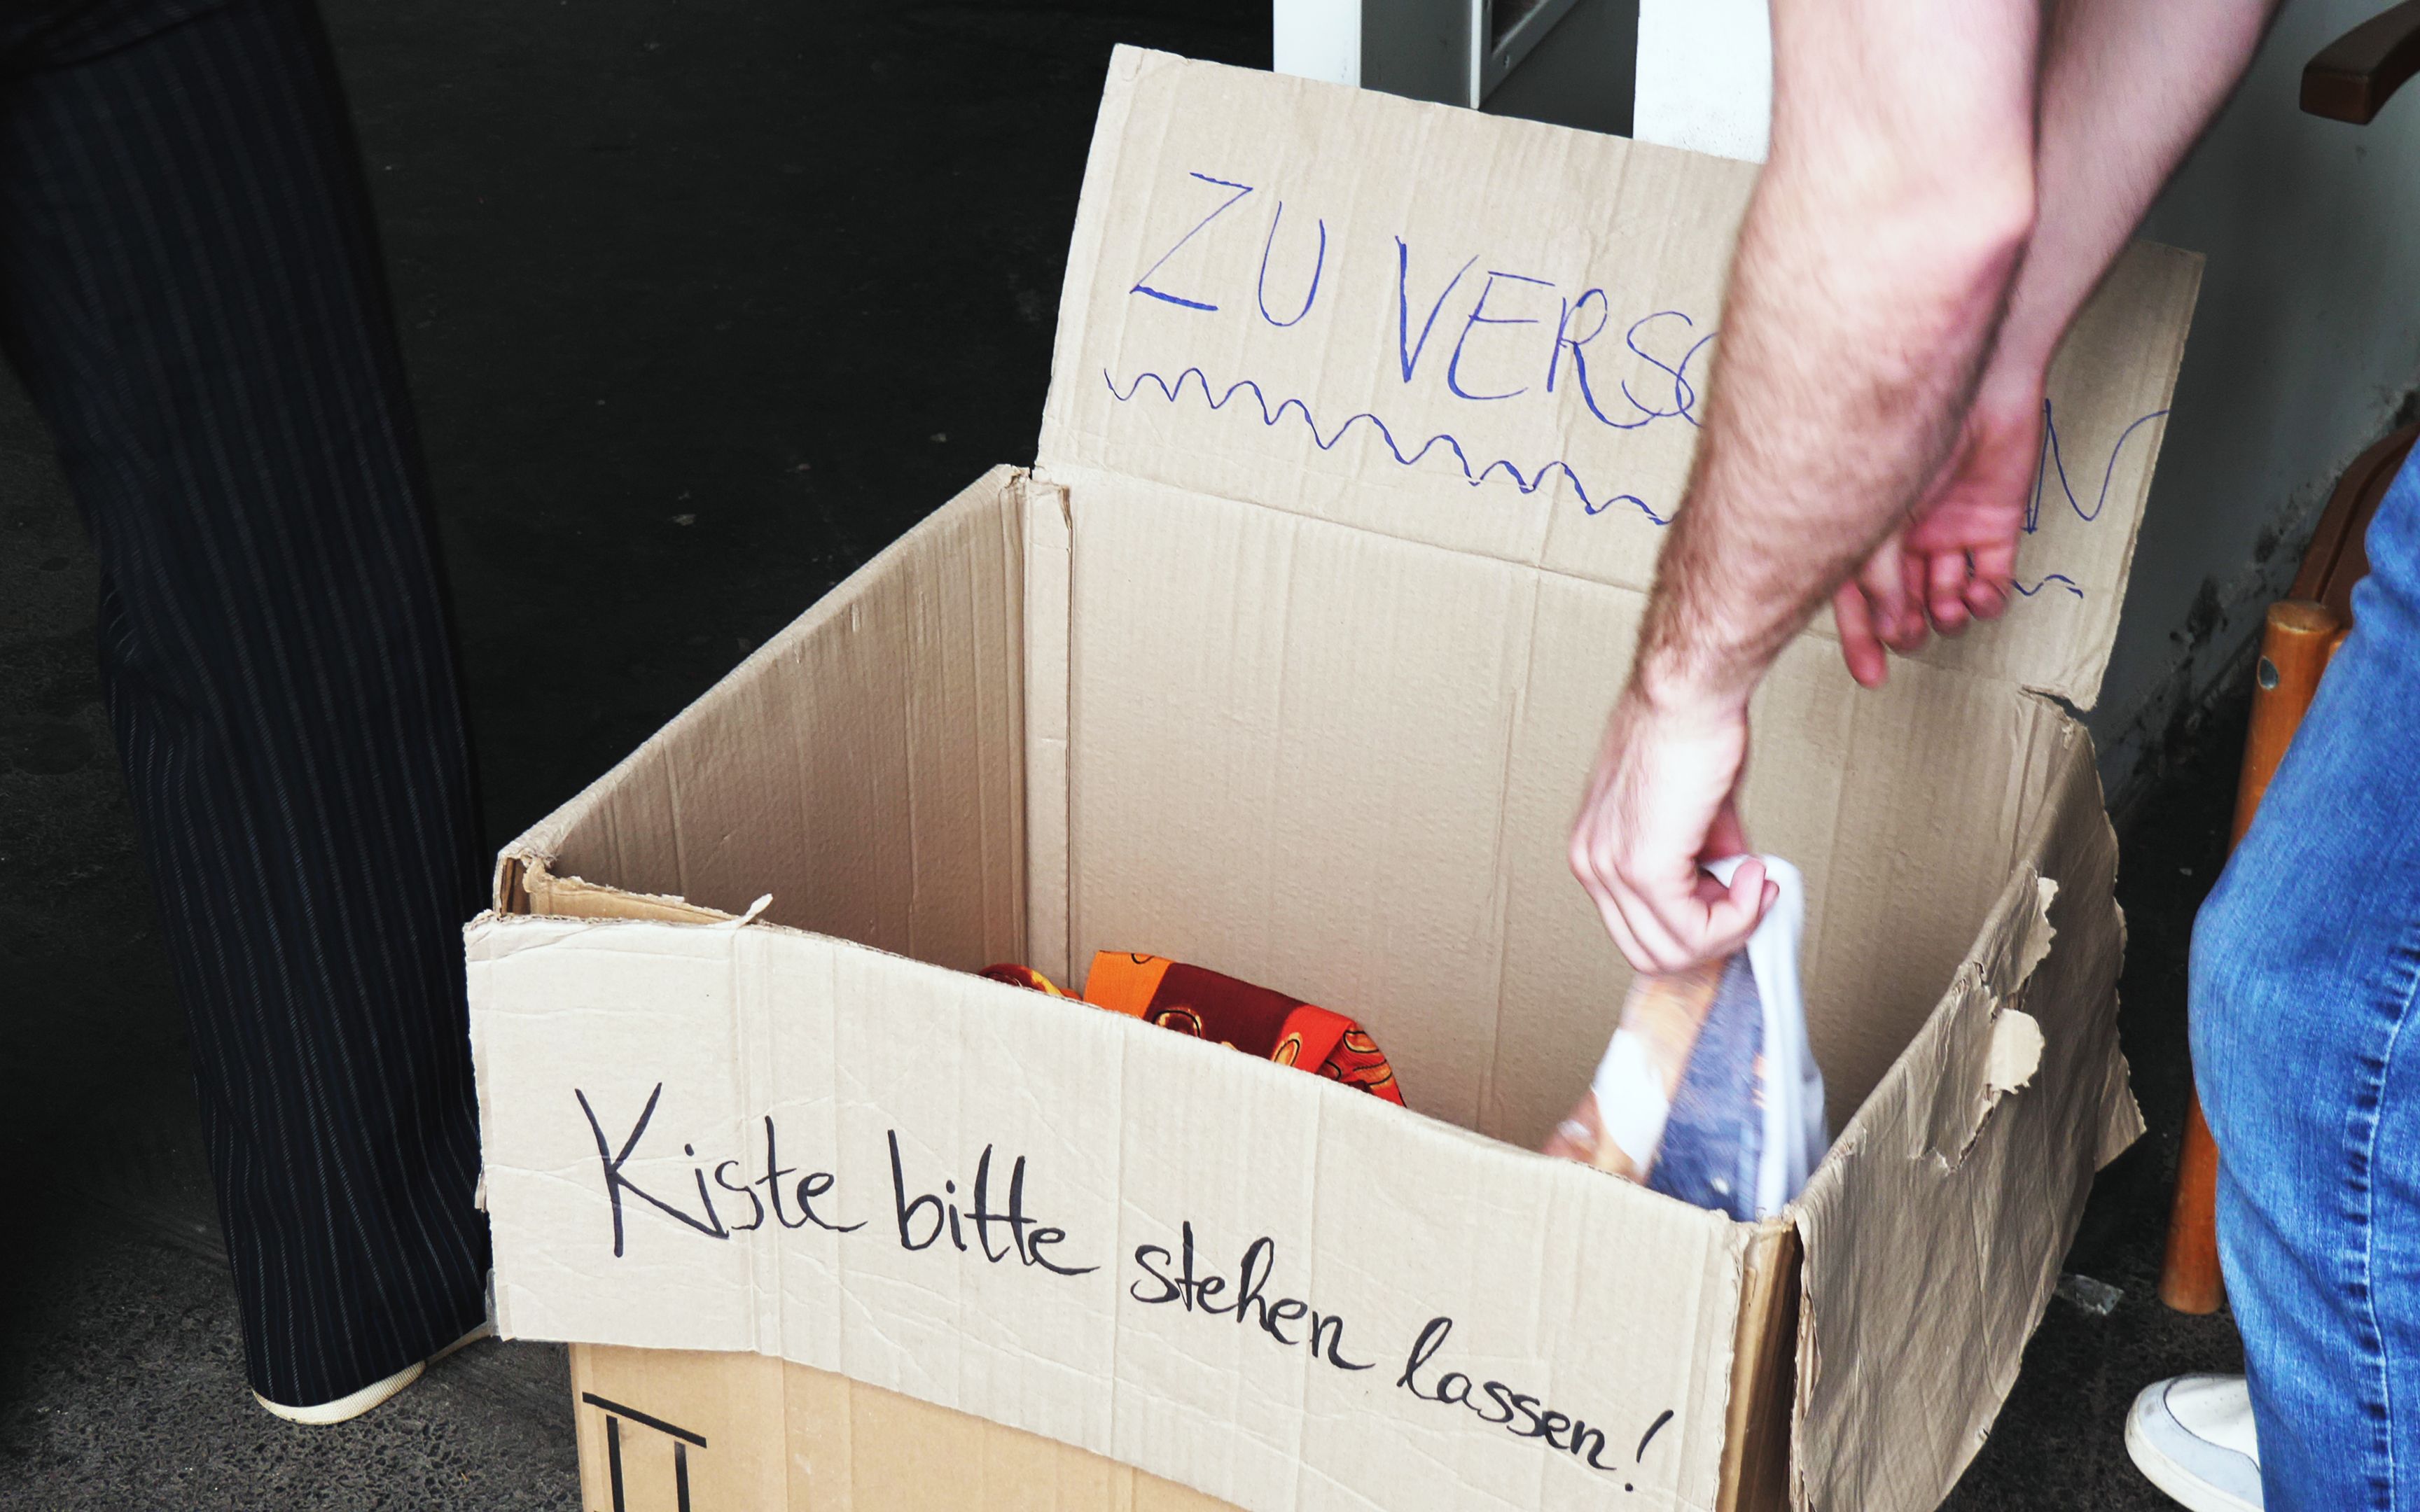 ZU
Kiste bitte stehen lassen!